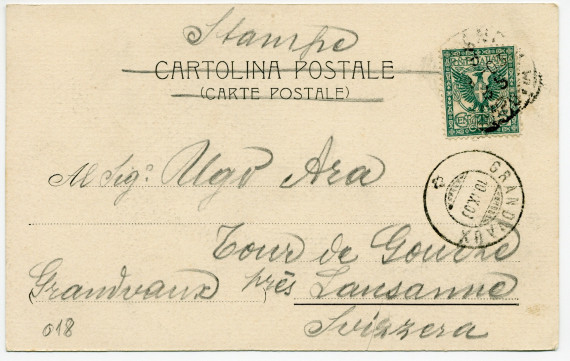 Stampe
CARTOLINA POSTALE
(CARTE POSTALE)
GRANDVAUX
10.IX.03
Al Sig. Ugo Ara
Tour de Gourze
Grandvaux près Lausanne
Svizzera
018